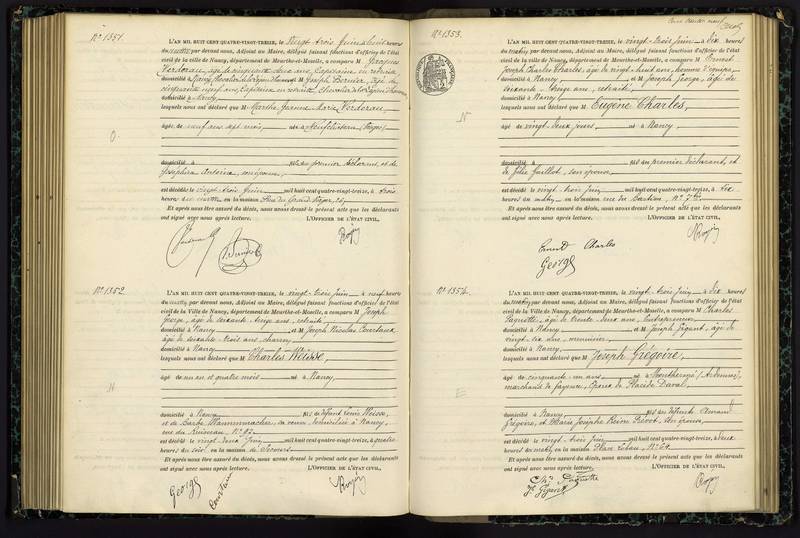 N° 1351.
L'AN MIL HUIT CENT QUATRE-VINGT-TREIZE, le Vingt-trois Juin, à huit heures
du matin par devant nous, Adjoint au Maire, délégué faisant fonctions d'officier de l'état
civil de la Ville de Nancy, département de Meurthe-et-Moselle, a comparu M Jacques
Verdorau, âgé de cinquante-deux ans, Capitaine en retraite
domicilié à Nancy, et M Joseph Bernier, âgé de
cinquante neuf ans, Capitaine en retraite, chevalier de la Légion d'honneur
domicilié à Nancy
lesquels nous ont déclaré que M Marthe Jeanne Marie Verdorau,
âgée de neuf ans, sept mois, née à Neufchâteau (Vosges)
domicilié à fils du premier déclarant, et de
Joséphine son épouse,
est décédé le vingt-trois Juin mil huit cent quatre-vingt-treize, à trois
heures du matin en la maison Rue du Grand Verger, 24
Et après nous être assuré du décès, nous avons dressé le présent acte que les déclarants
ont signé avec nous après lecture. L'OFFICIER DE L'ÉTAT CIVIL,
N° 1352
L'AN MIL HUIT CENT QUATRE-VINGT-TREIZE, le vingt-trois Juin à neuf heures
du matin, par devant nous, Adjoint au Maire, délégué faisant fonctions d'officier de l'état
civil de la Ville de Nancy, département de Meurthe-et-Moselle, a comparu M Joseph
George, âgé de soixante-treize ans, retraité,
domicilié à Nancy et M Joseph Nicolas Courtaux
âgé de soixante-trois ans, charron,
domicilié à Nancy
lesquels nous ont déclaré que M Charles Weisse,
âgé de un an et quatre mois né à Nancy,
domicilié à Nancy fils de défunt Louis Weisse,
et de Barbe sa veuve, domiciliée à Nancy,
rue du Ruisseau, N° 92
est décédé le vingt-deux Juin mil huit cent quatre-vingt-treize, à quatre
heures du soir en la maison de Secours
Et après nous être assuré du décès, nous avons dressé le présent acte que les déclarants
ont signé avec nous après lecture. L'OFFICIER DE L'ÉTAT CIVIL,
George
Courtaux
N° 1353.
L'AN MIL HUIT CENT QUATRE-VINGT-TREIZE, le vingt-trois Juin à dix heures
du matin par devant nous, Adjoint au Maire, délégué faisant fonctions d'officier de l'état
civil de la Ville de Nancy, département de Meurthe-et-Moselle, a comparu M Ernest
Joseph Charles Charles, âgé de vingt-huit ans, homme d'équipe,
domicilié à Nancy, et M Joseph George, âgé de
soixante-treize ans, retraité,
domicilié à Nancy
lesquels nous ont déclaré que M Eugène Charles,
âgé de vingt-deux jours, né à Nancy
domicilié à fils du premier déclarant, et
de Julie Guillot, son épouse
est décédé le vingt-trois Juin mil huit cent quatre-vingt-treize, à six
heures du matin en la maison rue du Bastion, N°
Et après nous être assuré du décès, nous avons dressé le présent acte que les déclarants
ont signé avec nous après lecture. L'OFFICIER DE L'ÉTAT CIVIL,
Ernest Charles
George
N° 1354.
L'AN MIL HUIT CENT QUATRE-VINGT-TREIZE, le vingt-trois Juin à dix heures
du matin par devant nous, Adjoint au Maire, délégué faisant fonctions d'officier de l'état
civil de la Ville de Nancy, département de Meurthe-et-Moselle, a comparu M Charles
Paquotte, âgé de trente-deux ans, Entrepreneur
domicilié à Nancy et M Joseph Gigant, âgé de
vingt-six ans, menuisier
domicilié à Nancy
lesquels nous ont déclaré que M Joseph Grégoire,
âgé de cinquante-un ans, né à Monthermé (Ardennes),
marchand de fayence, Epoux de Placide Daval,
domicilié à Nancy, fils des défunts Amand
Grégoire, et Marie Josèphe Reine Prévot,
est décédé le vingt-trois Juin mil huit cent quatre-vingt-treize, à deux
heures du matin, en la maison Place Lobau, N° 64
Et après nous être assuré du décès, nous avons dressé le présent acte que les déclarants
ont signé avec nous après lecture. L'OFFICIER DE L'ÉTAT CIVIL,
Ch. Paquotte
Jh Gigant